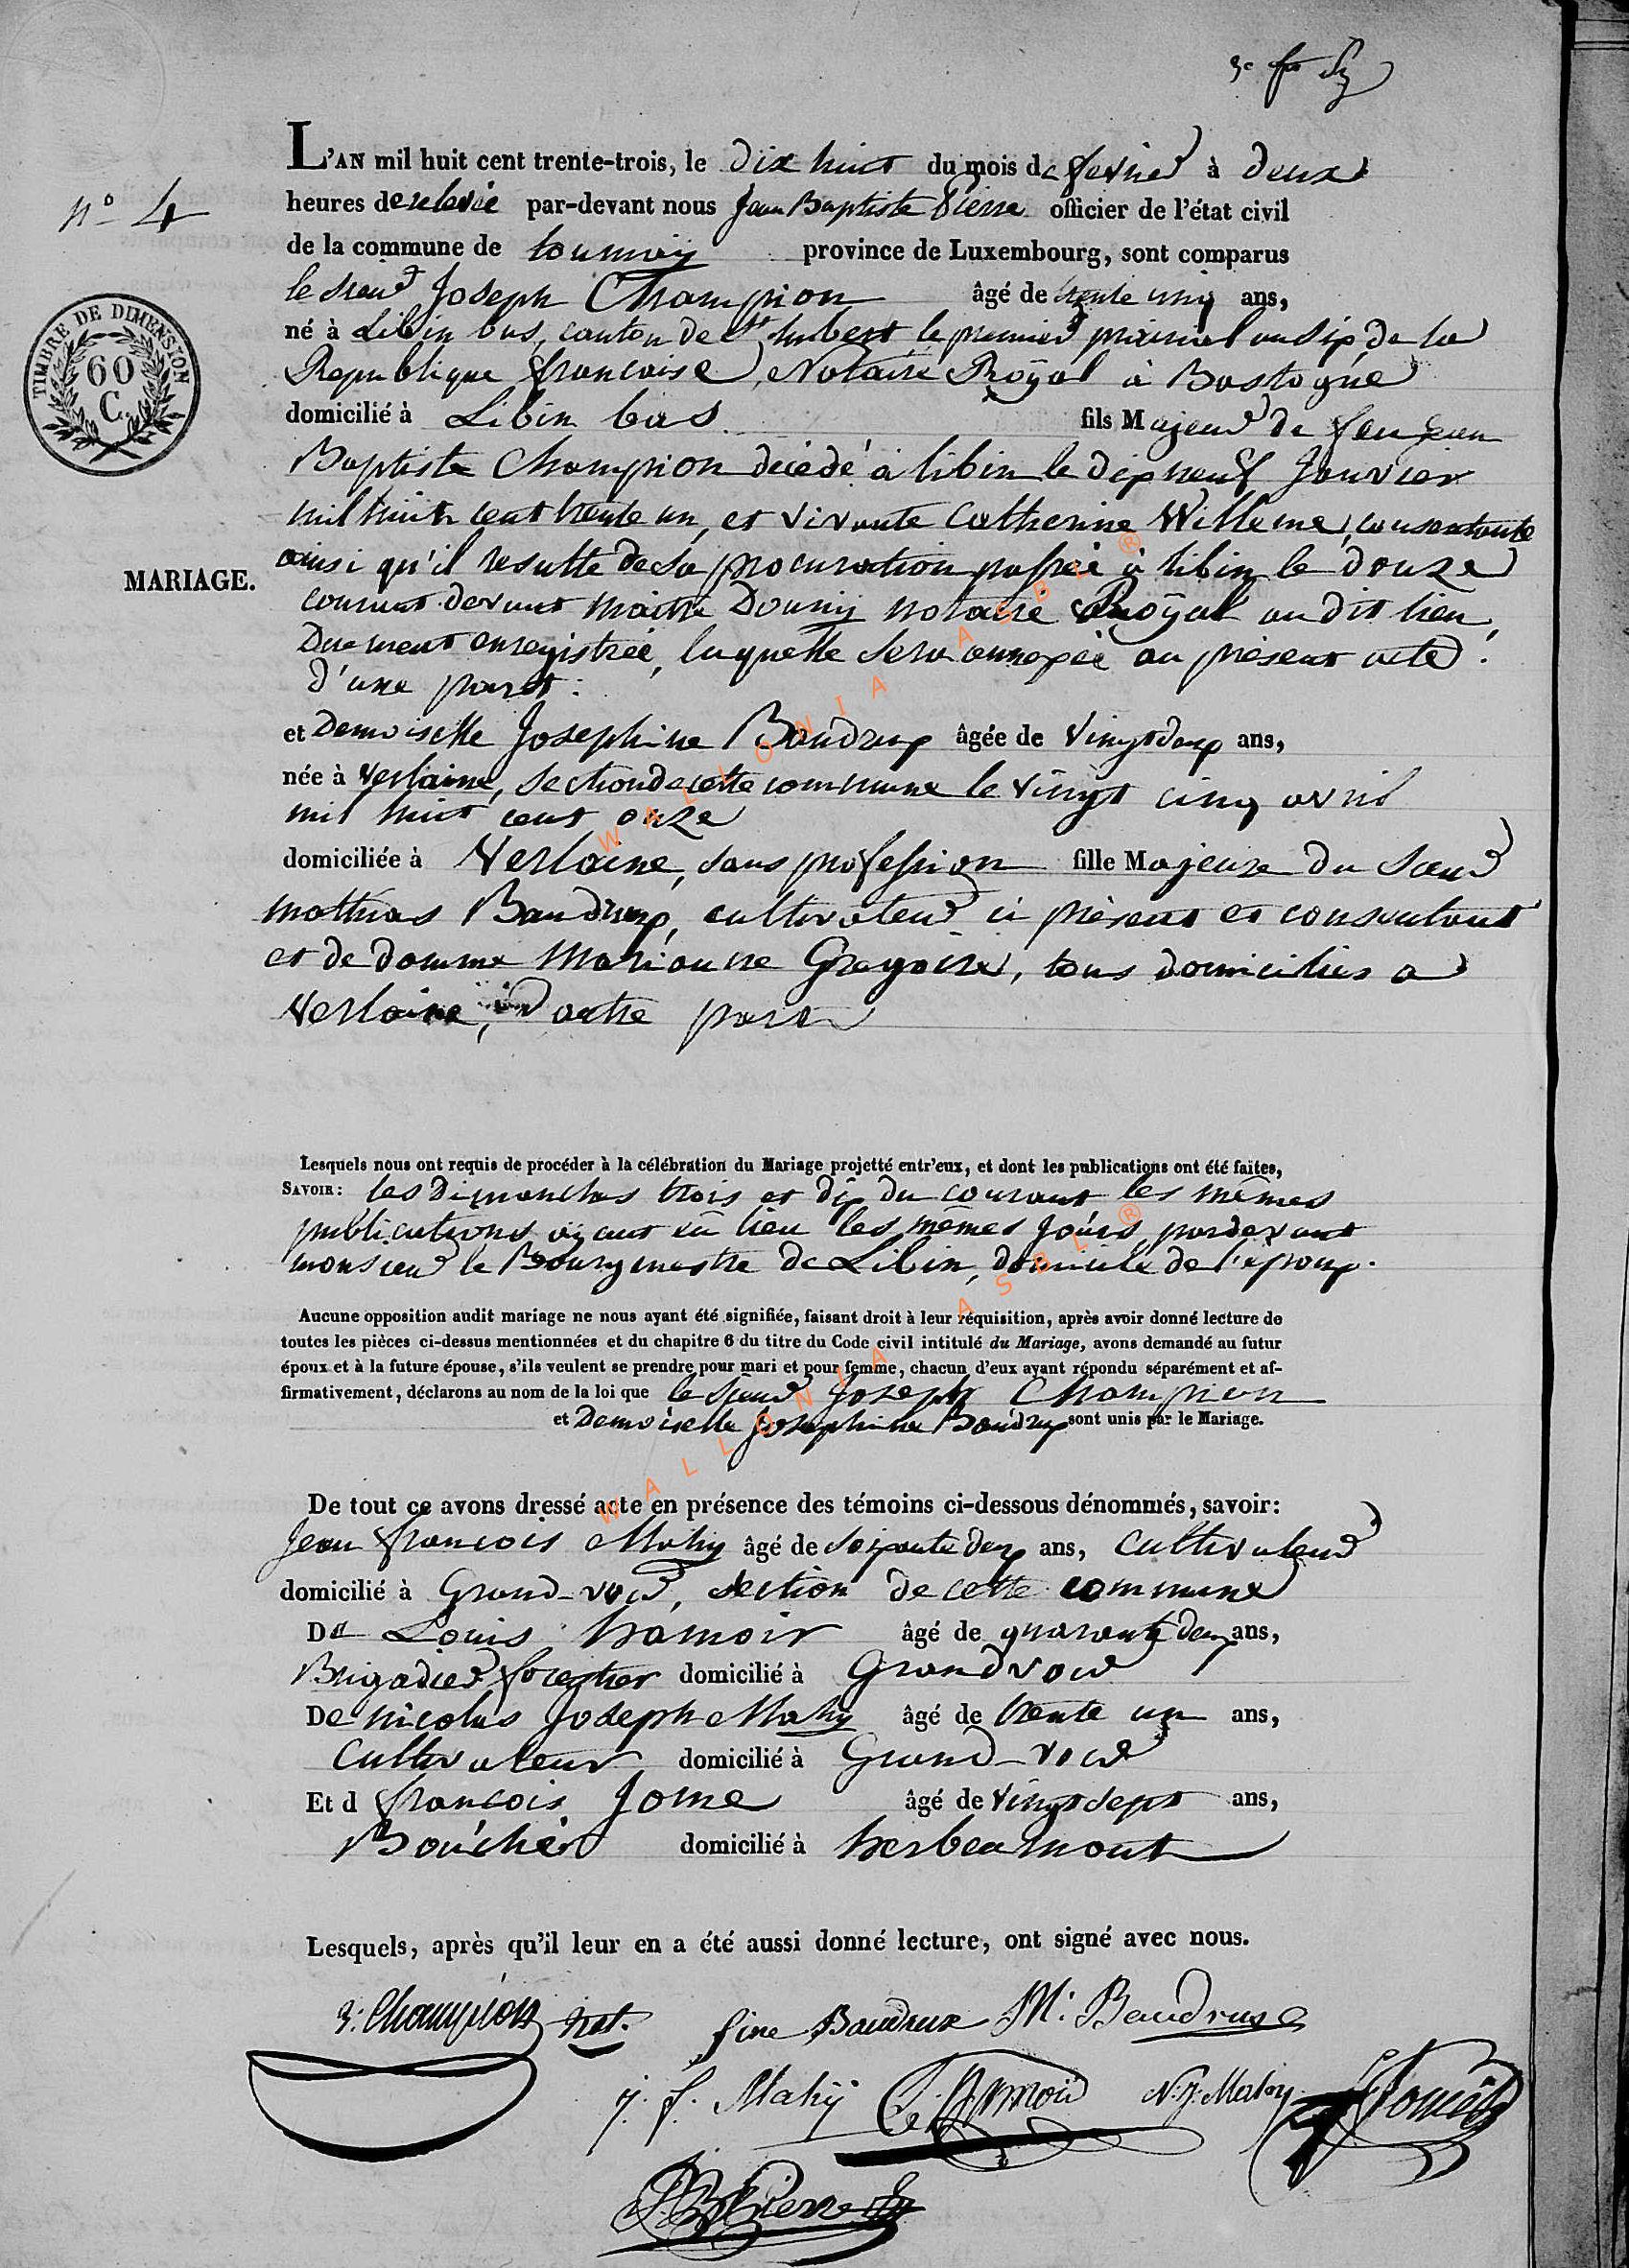 3e
L'AN mil huit cent trente-trois, le dix huit du mois de fevrier à deux
n° 4
heures de relevée par-devant nous Jean Baptiste Pierre officier de l'état civil
de la commune de tournay province de Luxembourg, sont comparus
le sieur Joseph Champion âgé de trente cinq ans,
TIMBRE DE DIMENSION
60
C.
né à Libin bas, canton de St hubert le premier prairial an six de la
Republique francaise, Notaire Roÿal à Bastogne
domicilié à Libin bas fils Majeur de feu jean
Baptiste Champion décédé à libin le dix neuf Janvier
mil huit cent trente un, et vivante Catherine Willeme, consentante
ainsi qu'il resulte de sa procuration passée à libin le douze
MARIAGE.
courant devant maitre Douny notaire Roÿal au dit lieu,
Duement enregistrée, laquelle sera annexée au présent acte.
d'une part:
et Demoiselle Josephine Baudrux âgée de vingt deux ans,
née à Verlaine, section de cette commune le vingt cinq avril
mil huit cent onze
domiciliée à Verlaine, sans profession fille Majeure du Sieur
Mathias Baudrux, cultivateur ci présent et consentant
et de damme Marianne Gregoire, tous domiciliés a
Verlaine, d'autre part
Lesquels nous ont requis de procéder à la célébration du Mariage projetté entr'eux, et dont les publications ont été faites,
SAVOIR: les Dimanches trois et dix du courant les mêmes
publications aÿant eû lieu les mêmes jours pardevant
monsieur le Bourgmestre de Libin, domicile de l'époux.
Aucune opposition audit mariage ne nous ayant été signifiée, faisant droit à leur réquisition, après avoir donné lecture de
toutes les pièces ci-dessus mentionnées et du chapitre 6 du titre du Code civil intitulé du Mariage, avons demandé au futur
époux et à la future épouse, s'ils veulent se prendre pour mari et pour femme, chacun d'eux ayant répondu séparément et af-
firmativement, déclarons au nom de la loi que le sieur Joseph Champion
et Demoiselle Josephine Baudrux sont unis par le Mariage.
De tout ce avons dressé acte en présence des témoins ci-dessous dénommés, savoir:
Jean francois Mahy âgé de soixante deux ans, cultivateur
domicilié à Grand-voir, section de cette commune
De Louis hamoir âgé de quarante deux ans,
Brigadier forestier domicilié à Grandvoir
De nicolas Joseph Mahy âgé de trente un ans,
Cultivateur domicilié à Grand-voir
Et d francois Jome âgé de vingt sept ans,
Boucher domicilié à herbeumont
Lesquels, après qu'il leur en a été aussi donné lecture, ont signé avec nous.
J. Champion not. fine Baudrux M. Baudruxe
j. f. Mahÿ L. hamoir N. J. Mahy F Jome
JB Pierre
WALLONIA ASBL ®
WALLONIA ASBL ®